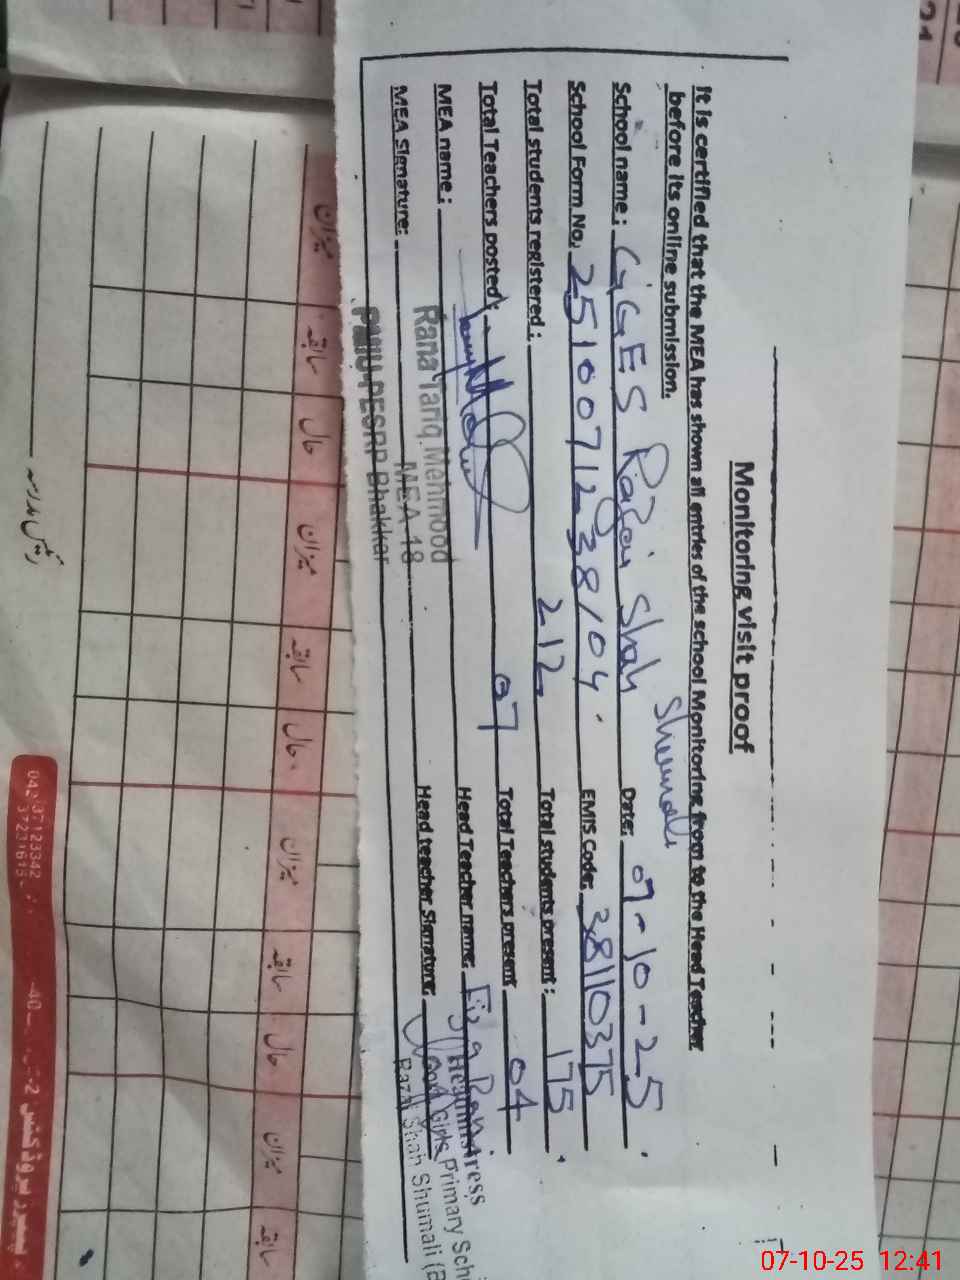 Monitoring visit proof
It is certified that the MEA has shown all entries of the school Monitoring from to the Head Teacher
before its online submission.
Shumali
School name: GGES Razai Shah Date: 07-10-25
School Form No. 2510071238104 EMIS Code: 38110375
Total students registered: 212 Total students present: 175
Total Teachers posted: 07 Total Teachers present 04
MEA name: Rana Tariq Mehmood Head Teacher name:
MEA 18
MEA Signature: PMIU-PESRP Bhakkar Head teacher Signature:
Headmistress
Govt Girls Primary Sch
Shah Shumali (B
میزان سابقہ حال میزان سابقہ حال میزان سابقہ حال میزان سابقہ
042-37123342
07-10-25 12:41